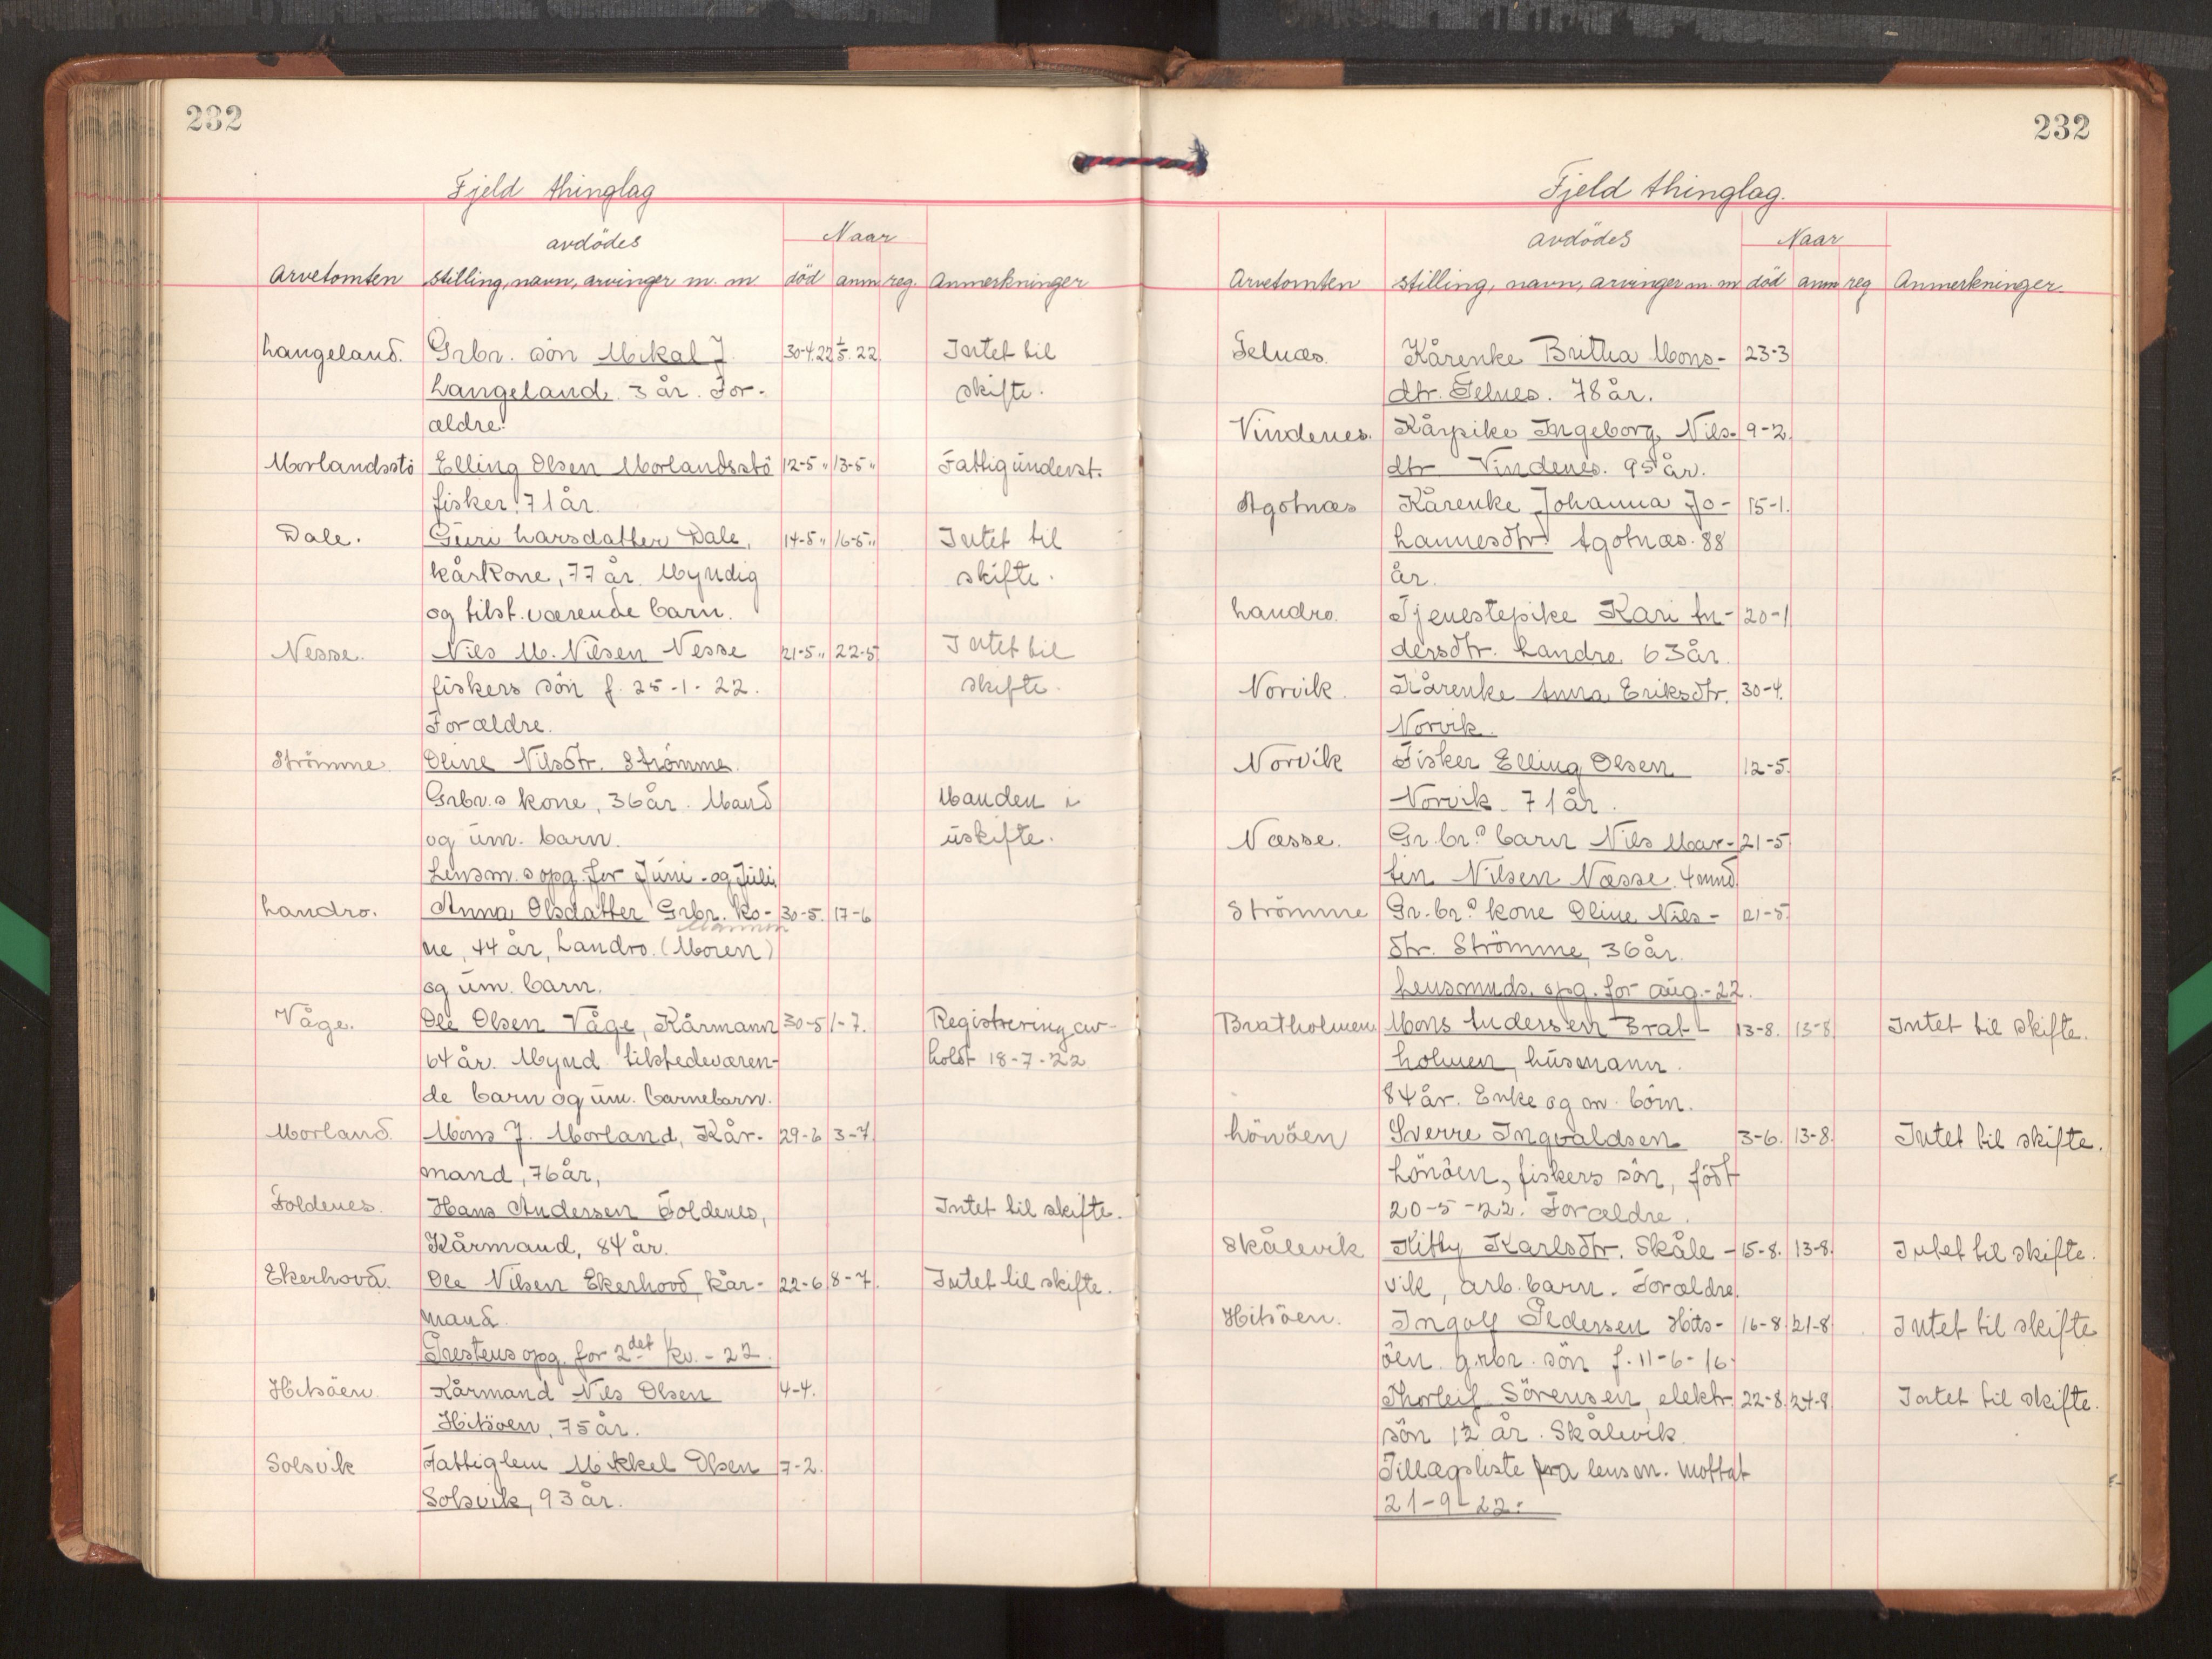 232
Fjeld thinglag
avdödes
Naar
Arvetomten stilling, navn, arvinger m. m död anm reg. Anmerkninger
Langeland. Grbr. sön Mikal J. 30-4.22 1/5.22. Intet til
Langeland, 3 år. For- skifte.
ældre.
Morlandsstö Elling Olsen Morlandsstö 12-5 " 13-5 " Fattigunderst.
fisker, 71 år.
Dale. Guri Larsdatter Dale, 14-5 " 16-5 " Intet til
kårkone, 77 år. Myndig skifte.
og tilst. værende barn.
Nesse. Nils M. Nilsen Nesse 21-5 " 22-5 Intet til
fiskers sön f. 25-1-22. skifte.
Forældre.
Strömme. Oline Nilsdtr. Strömme.
Grbr.s kone, 36 år. Mand Manden i
og um. barn. uskifte.
Lensm.s opg. for Juni - og Juli.
Landro. Anna Olsdatter Grbr. ko- 30-5. 17-6
Mannen
ne, 44 år, Landro. (Moren)
og um. barn.
Våge. Ole Olsen Våge, Kårmann 30-5 1-7. Registrering av-
64 år. Mynd. tilstedeværen- holdt 18-7-22
de barn og um. barnebarn.
Morland. Mons J. Morland, Kår- 29-6 3-7.
mand, 76 år,
Foldenes. Hans Andersen Foldenes, Intet til skifte.
Kårmand, 84 år.
Ekerhovd. Ole Nilsen Ekerhovd, kår- 22-6 8-7. Intet til skifte.
mand.
Prestens opg. for 2det kv. - 22.
Hitsöen. Kårmand Nils Olsen 4-4.
Hitsöen, 75 år.
Solsvik Fattiglem Mikkel Olsen 7-2.
Solsvik, 93 år.
232
Fjeld thinglag.
avdödes
Naar
Arvetomten stilling, navn, arvinger m. m död anm reg Anmerkninger
Telnæs. Kårenke Britha Mons- 23-3
dtr. Telnes. 78 år.
Vindenes. Kårpike Ingeborg Nils- 9-2.
dtr Vindenes. 95 år.
Agotnæs Kårenke Johanna Jo- 15-1.
hannesdtr. Agotnæs. 88
år.
Landro. Tjenestepike Kari An- 20-1
dersdtr. Landro, 63 år.
Norvik. Kårenke Anna Eriksdtr. 30-4.
Norvik.
Norvik Fisker Elling Olsen 12-5.
Norvik. 71 år.
Næsse. Gr.br.s barn Nils Mar- 21-5
tin Nilsen Næsse. 4 mnd.
Strömme Gr.br.s kone Oline Nils- 21-5.
dtr. Strömme, 36 år.
Lensmnds. opg. for aug.-22.
Bratholmen Mons Andersen Brat- 13-8. 13-8 Intet til skifte.
holmen, husmann.
84 år. Enke og m. börn.
Lönöen Sverre Ingvaldsen 3-6. 13-8. Intet til skifte.
Lönöen, fiskers sön, född
20-5-22. Forældre.
Skålevik Kitty Karlsdtr. Skåle- 15-8. 13-8. Intet til skifte.
vik, arb. barn. Forældre.
Hitsöen. Ingolf Pedersen Hits- 16-8 21-8 Intet til skifte
öen. grbr. sön f. 11-6-16.
Thorleif Sörensen, elektr. 22-8. 24-8. Intet til skifte.
sön 12 år. Skålevik.
Tillægsliste fra lensm. mottat
21-9-22.